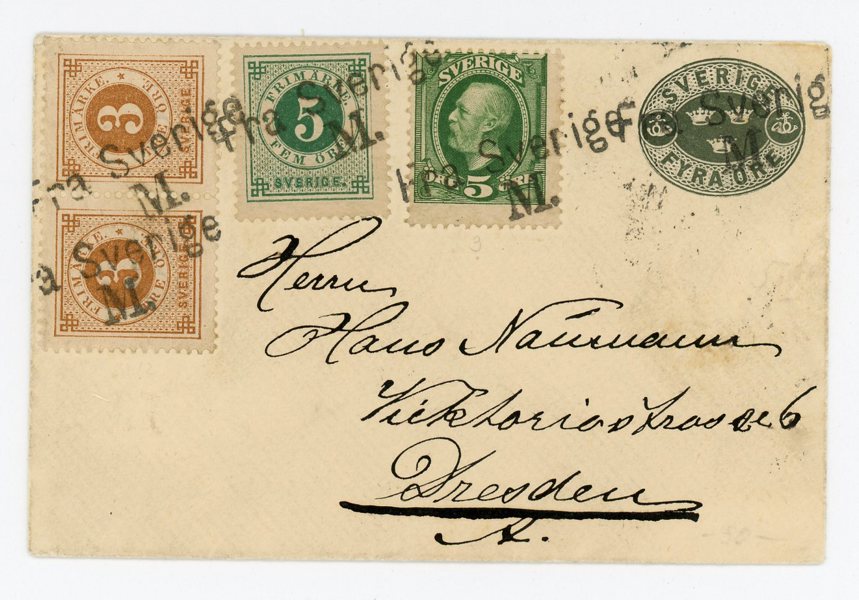 FRIMÄRKE. 3 TRE ÖRE SVERIGE
FRIMÄRKE. 5 FEM ÖRE SVERIGE.
SVERIGE 5 ÖRE
SVERIGE FYRA ÖRE
Fra Sverige
M.
Fra Sverige
M.
Fra Sverige
M.
Fra Sverige
M.
FRIMÄRKE. 3 TRE ÖRE SVERIGE
Fra Sverige
M.
Herrn
Hans Naumann
Viktoriastrasse 6
Dresden
A.